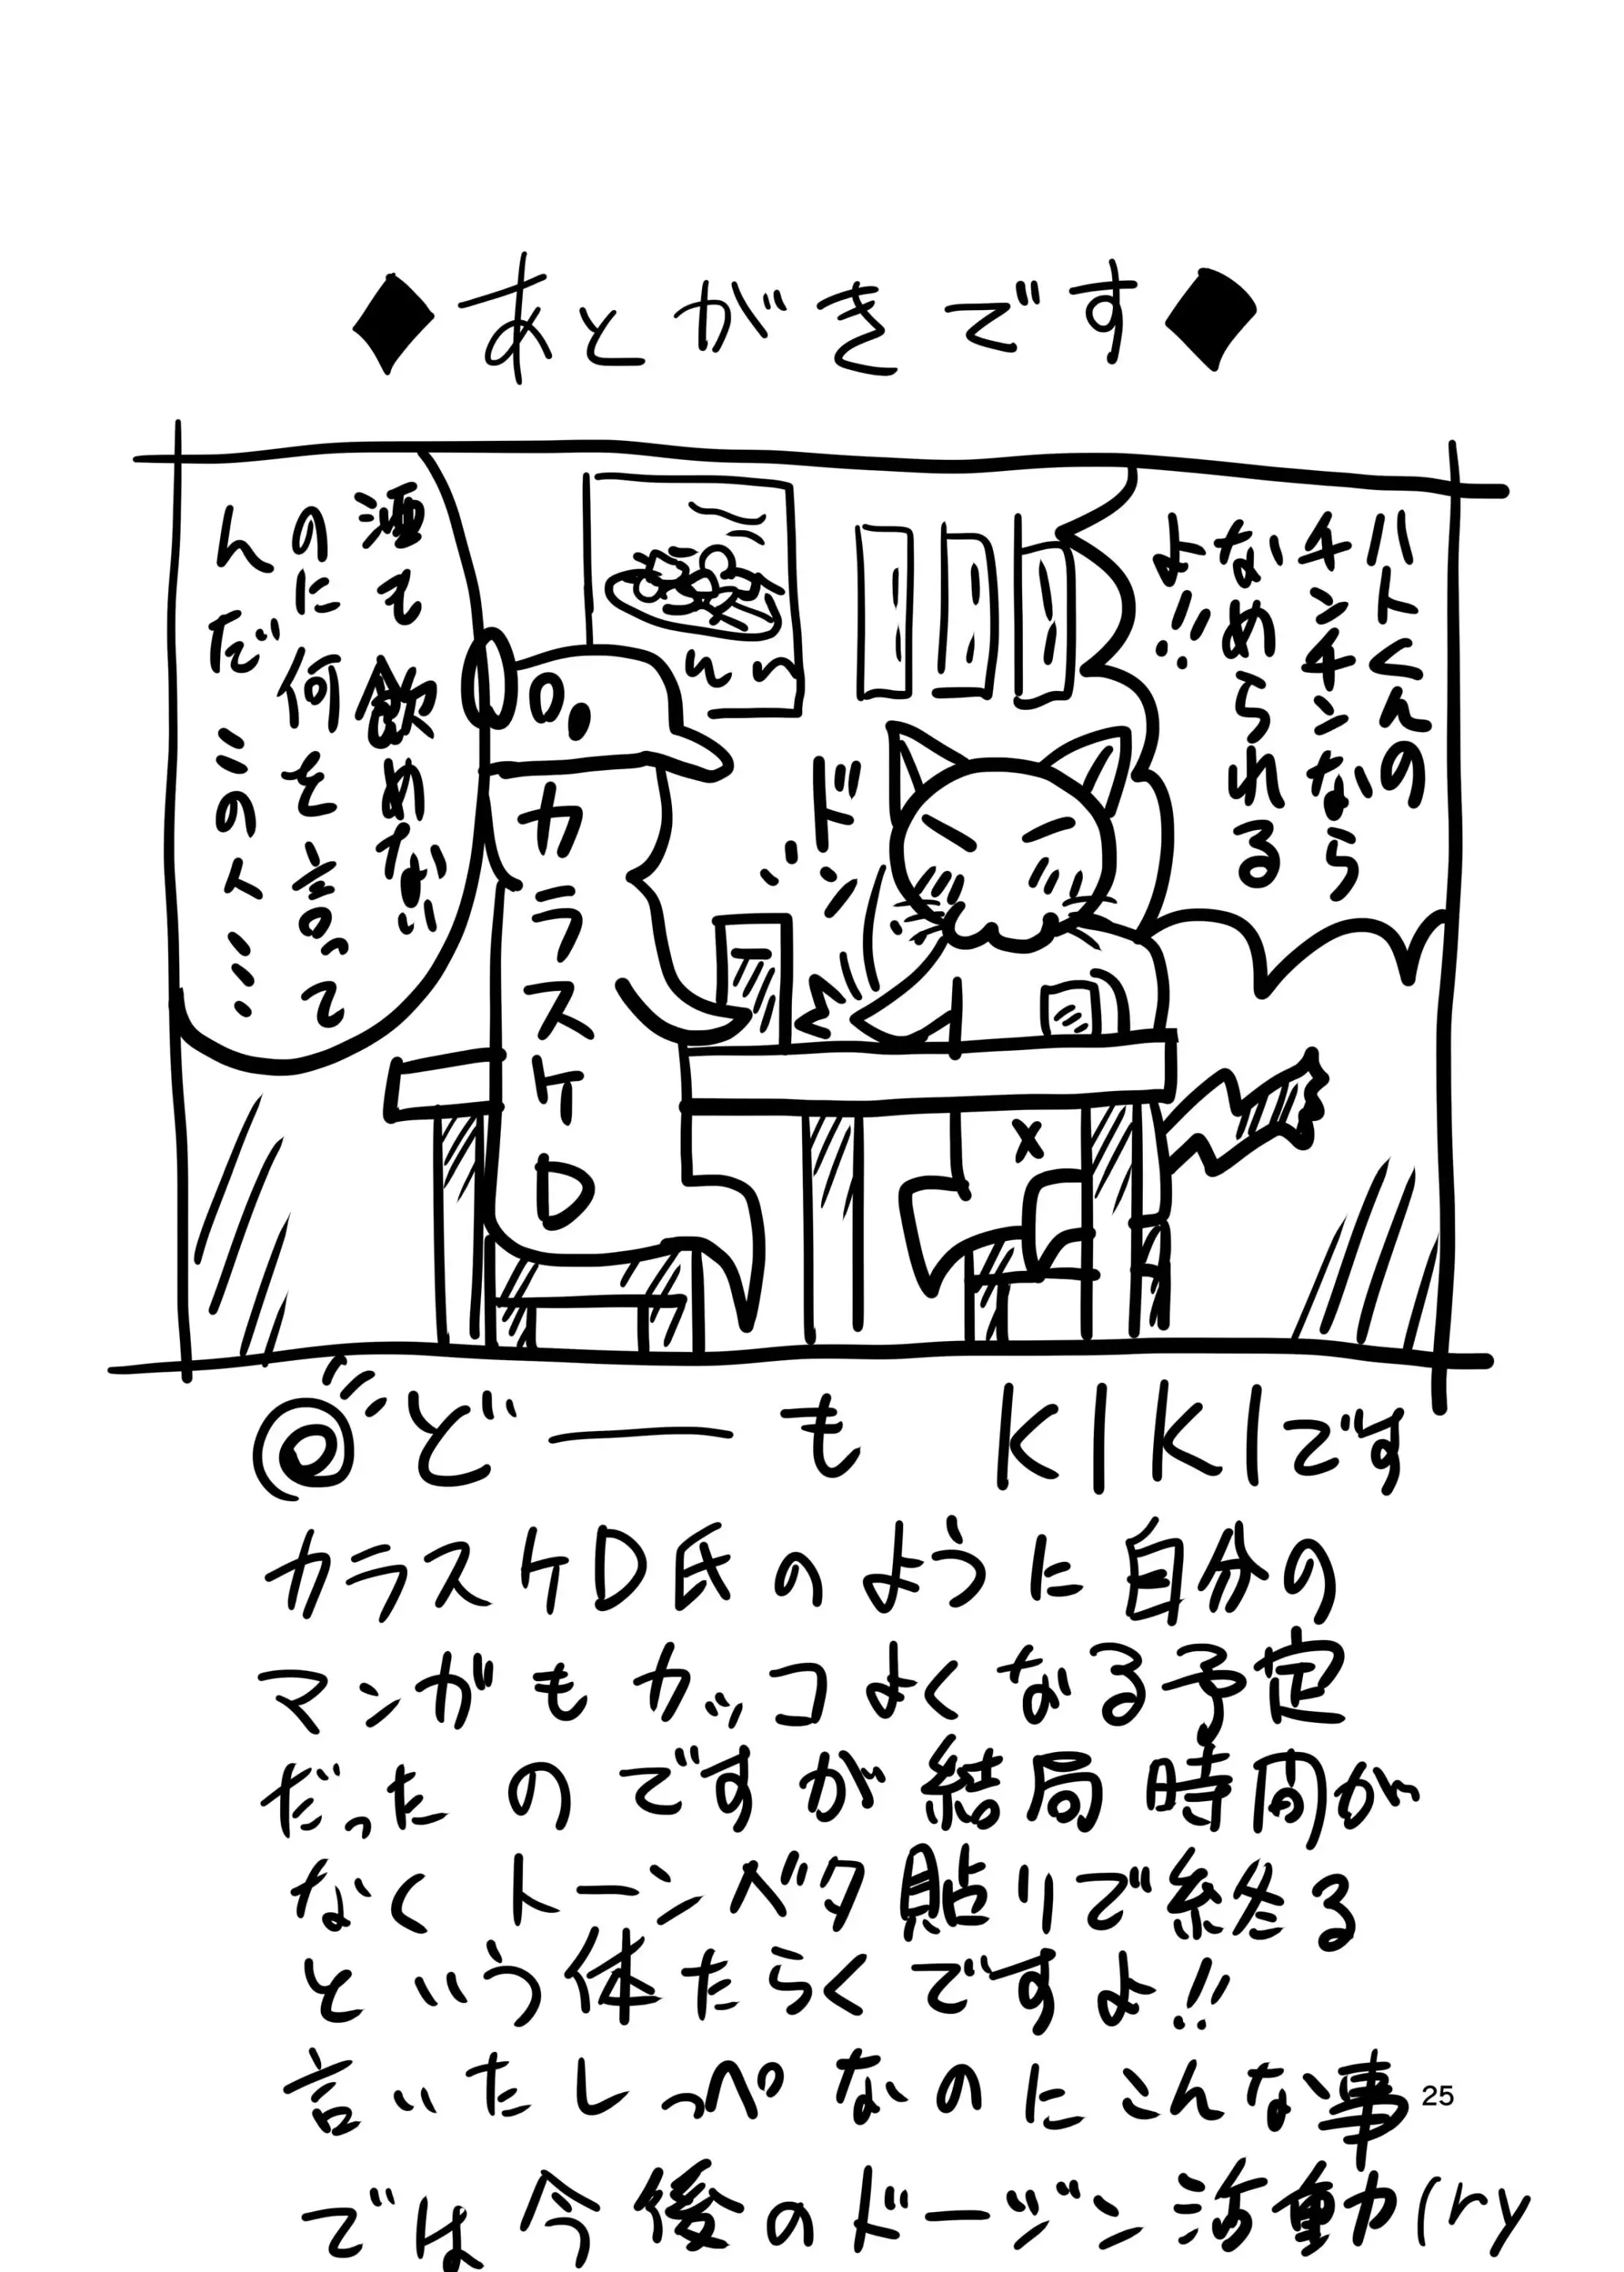 ◆あとがきです◆
ハヒくんの
チンチンなら
なめられる
よ!!
ドン
酒も
飲めない
のに何を言って
んだこの人……
カラスケD
どーもKIKIです
カラスケD氏のように自分の
マンガもカッコよくなる予定
だったのですが結局時間が
なくトーンベタ貼りで終る
という体たらくですよ!!
言いたしっぺなのにこんな事
では今後のドージン活動力(ry
25